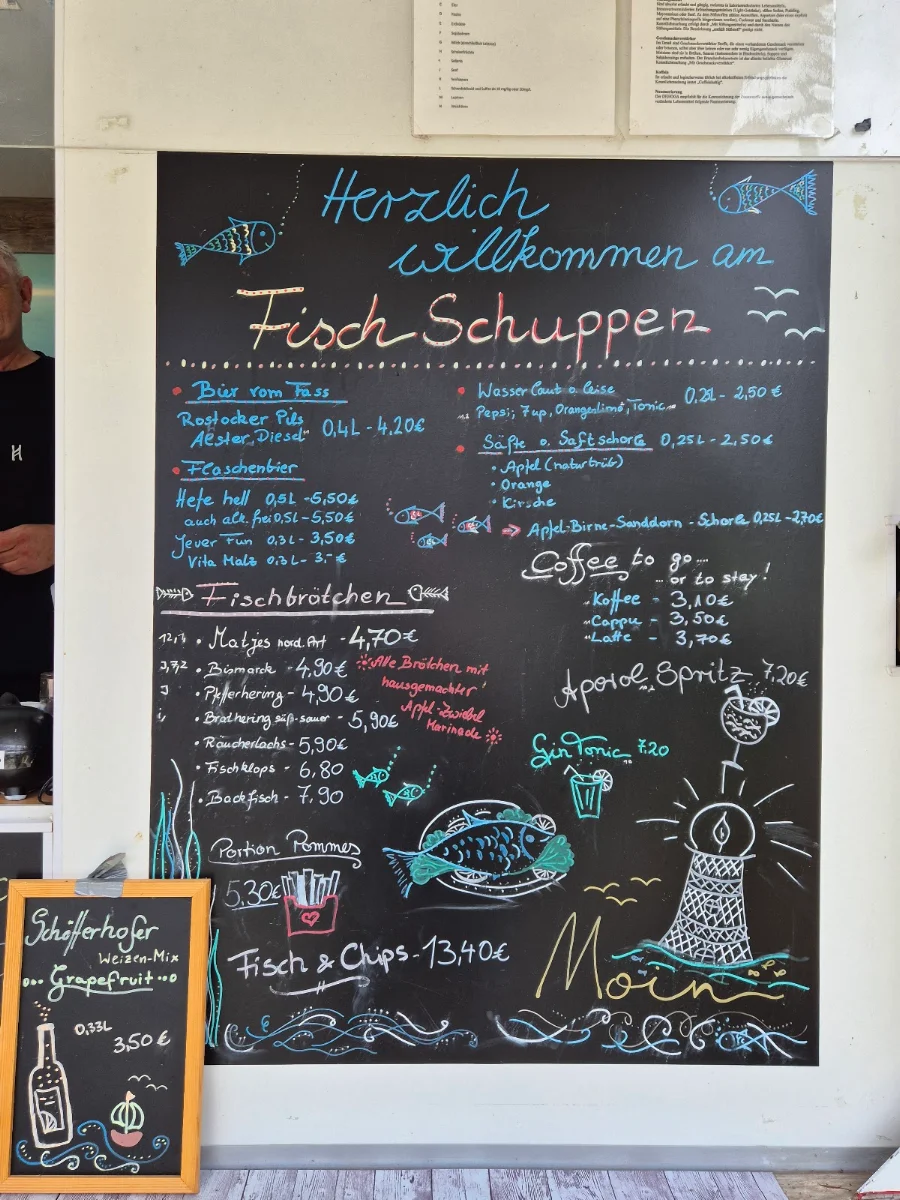 Herzlich
willkommen am
Fisch Schuppen
Bier vom Fass
Rostocker Pils
Alster, Diesel 0,4L - 4,20€
Flaschenbier
Hefe hell 0,5L - 5,50€
auch alk. frei 0,5L - 5,50€
Jever Fun 0,3L - 3,50€
Vita Malz 0,3L - 3,-€
Wasser laut o. leise 0,25L - 2,50€
Pepsi; 7up, Orangenlimo, Tonic
Säfte o. Saftschorle 0,25L - 2,50€
Apfel (naturtrüb)
Orange
Kirsche
Apfel-Birne-Sanddorn - Schorle 0,25L - 2,70€
Coffee to go...
... or to stay!
Kaffee - 3,10€
Cappu - 3,50€
Latte - 3,70€
Fischbrötchen
Matjes nord. Art - 4,70€
Bismarck - 4,90€
Pfefferhering - 4,90€
Brathering süß-sauer - 5,90€
Räucherlachs - 5,90€
Fischklops - 6,80
Backfisch - 7,90
Alle Brötchen mit
hausgemachter
Apfel-Zwiebel
Marinade
Aperol Spritz 7,20€
Gin Tonic 7,20
Portion Pommes
5,30€
Fisch & Chips - 13,40€
Moin
Schöfferhofer
Weizen-Mix
Grapefruit
0,33L
3,50€